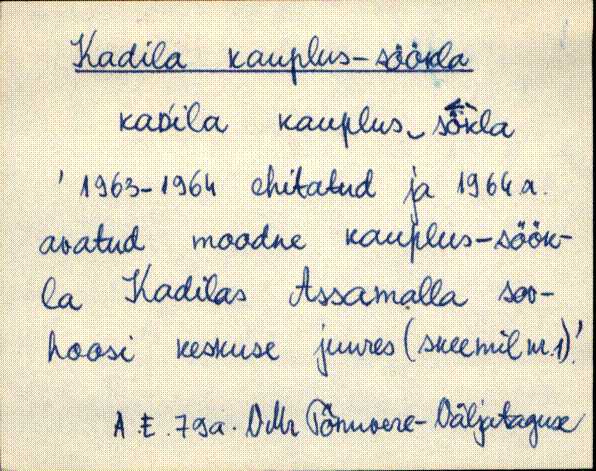 Kadila kauplus-söökla
kad́ila kauplus‿sö̀kla
'1963-1964 ehitatud ja 1964 a.
avatud moodne kauplus-söök-
la Kadilas Assamalla sov-
hoosi keskuse juures (skeemil nr. 1)'.
A.E. 79a. VMr Põnuvere-Väljataguse